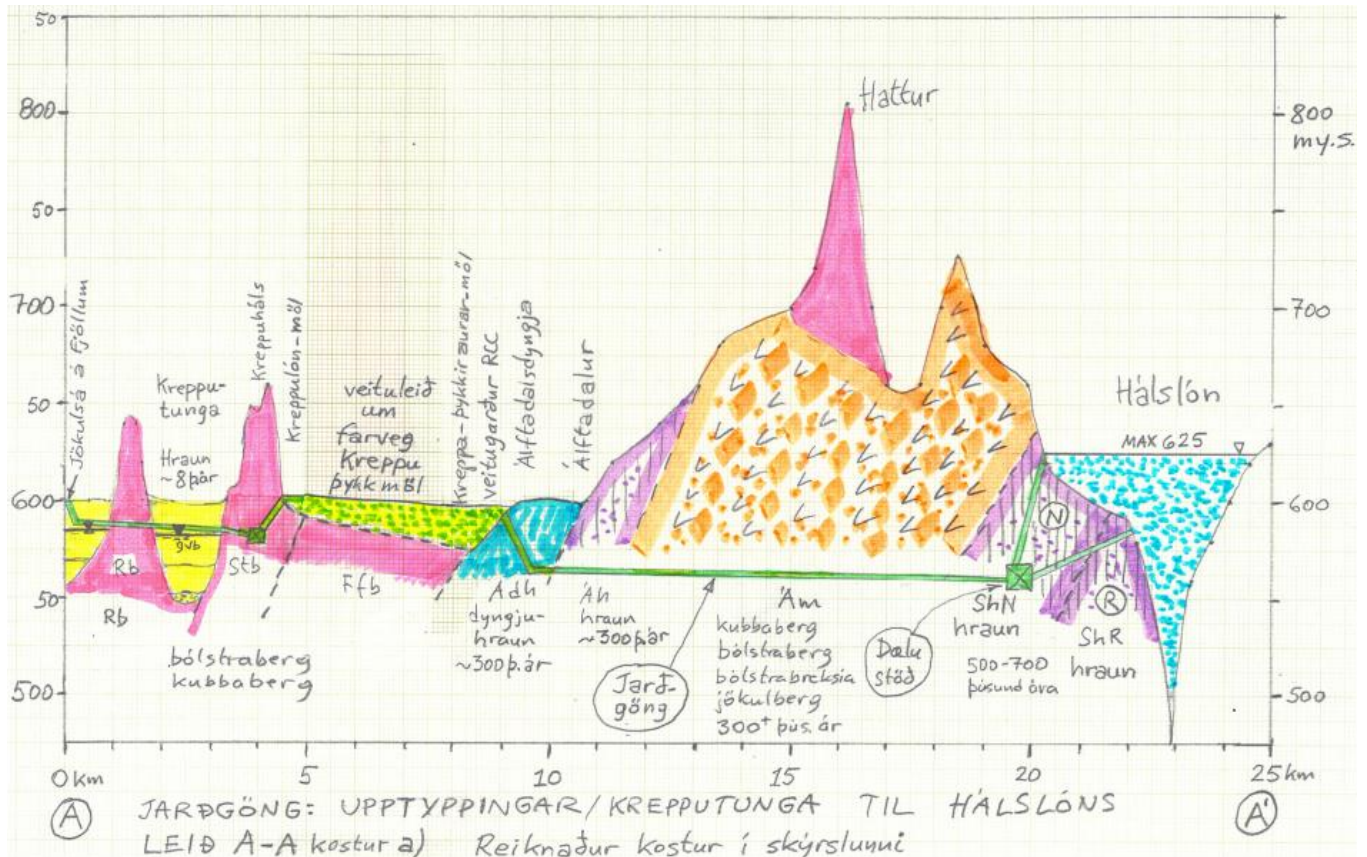 50
800
50
700
50
600
50
500
800
m y.s.
700
600
500
Hattur
Jökulsá á Fjöllum
Kreppu-
tunga
Hraun
~8þár
Kreppuháls
Kreppulón-möl
veituleið
um
farveg
Kreppu
þykk möl
Kreppa-þykkir aurar-möl
veitugarður RCC
Álftadalsdyngja
Álftadalur
Hálslón
MAX 625
gvb
Rb
Rb
Stb
Ffb
bólstraberg
kubbaberg
Ádh
dyngju-
hraun
~300þ.ár
Áh
hraun
~300þ.ár
Jarð-
göng
Ám
kubbaberg
bólstraberg
bólstrabreksía
jökulberg
300+ þús. ár
Dælu
stöð
ShN
hraun
500-700
þúsund ára
N
R
ShR
hraun
0 km
5
10
15
20
25 km
A JARÐGÖNG: UPPTYPPINGAR/KREPPUTUNGA TIL HÁLSLÓNS A'
LEIÐ A-A kostur a) Reiknaður kostur í skýrslunni